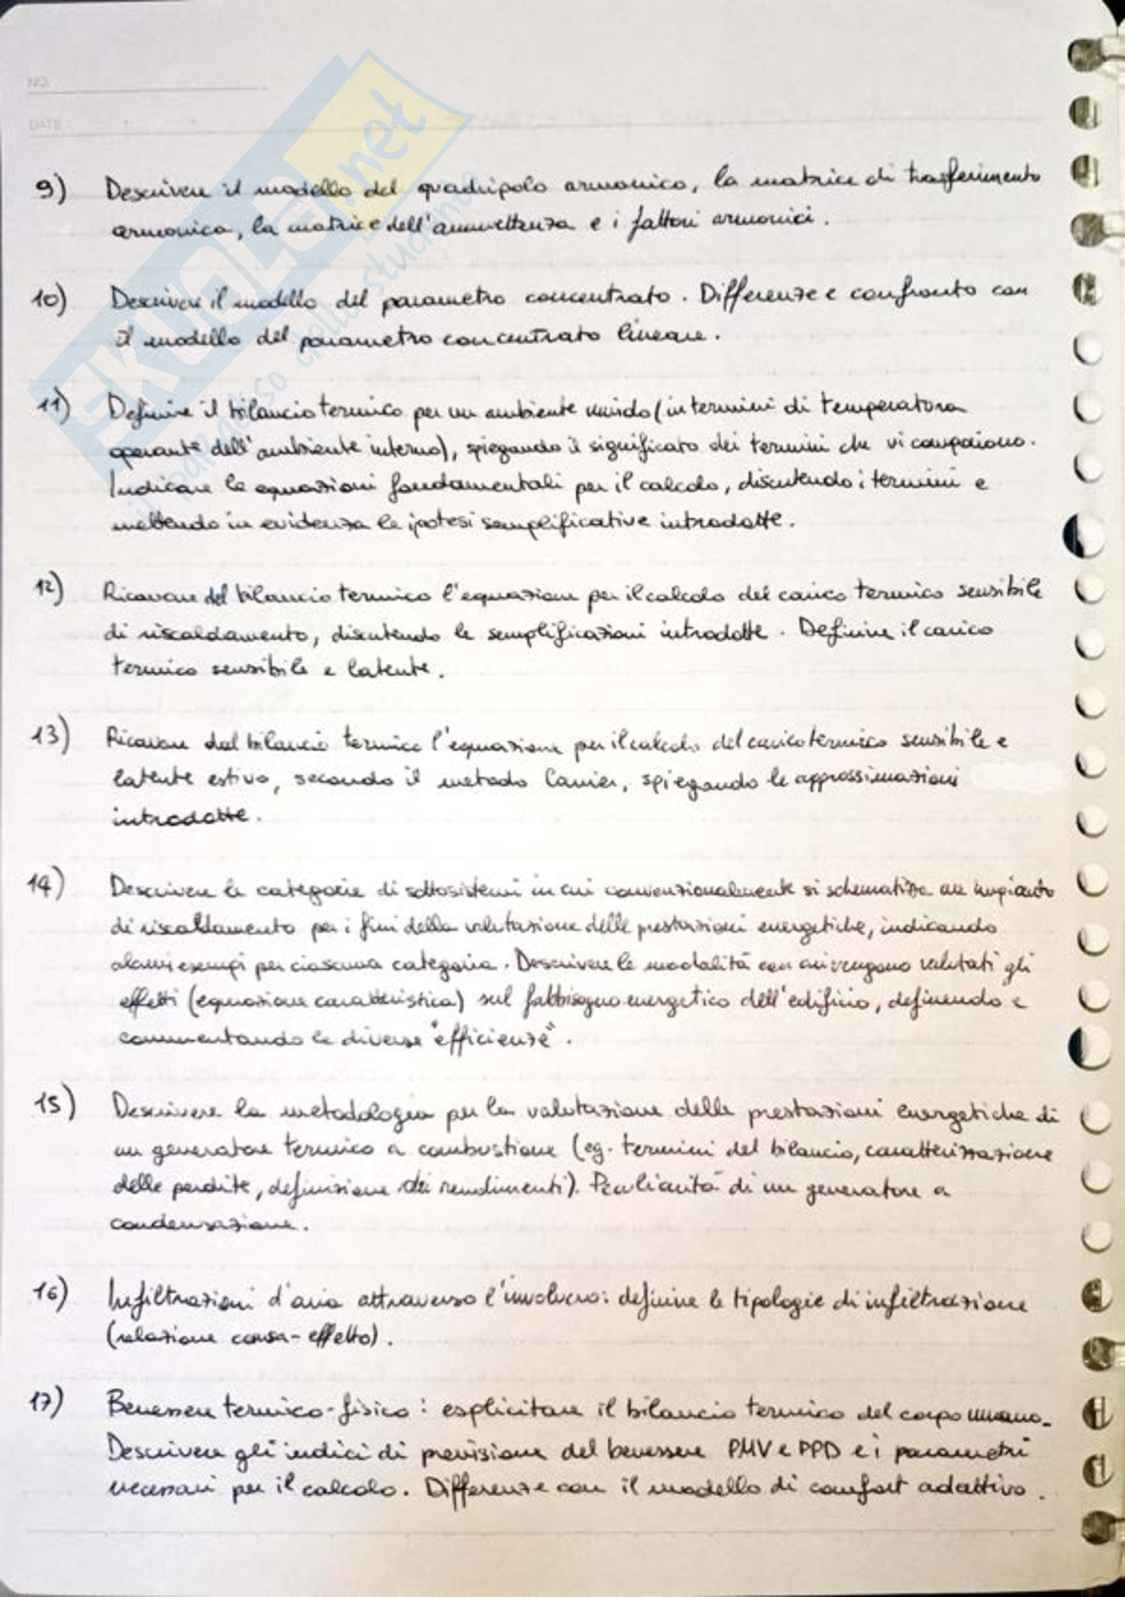 NO.
DATE
SKUOLA.net
9) Descrivere il modello del quadripolo armonico, la matrice di trasferimento
armonica, la matrice dell'ammettenza e i fattori armonici.
10) Descrivere il modello del parametro concentrato. Differenze e confronto con
il modello del parametro concentrato lineare.
11) Definire il bilancio termico per un ambiente umido (in termini di temperatura
operante dell'ambiente interno), spiegando il significato dei termini che vi compaiono.
Indicare le equazioni fondamentali per il calcolo, discutendo i termini e
mettendo in evidenza le ipotesi semplificative introdotte.
12) Ricavare dal bilancio termico l'equazione per il calcolo del carico termico sensibile
di riscaldamento, discutendo le semplificazioni introdotte. Definire il carico
termico sensibile e latente.
13) Ricavare dal bilancio termico l'equazione per il calcolo del carico termico sensibile e
latente estivo, secondo il metodo Carrier, spiegando le approssimazioni
introdotte.
14) Descrivere le categorie di sottosistemi in cui convenzionalmente si schematizza un impianto
di riscaldamento per i fini della valutazione delle prestazioni energetiche, indicando
alcuni esempi per ciascuna categoria. Descrivere le modalità con cui vengono valutati gli
effetti (equazione caratteristica) sul fabbisogno energetico dell'edificio, definendo e
commentando le diverse "efficienze".
15) Descrivere la metodologia per la valutazione delle prestazioni energetiche di
un generatore termico a combustione (eg. termini del bilancio, caratterizzazione
delle perdite, definizione dei rendimenti). Peculiarità di un generatore a
condensazione.
16) Infiltrazioni d'aria attraverso l'involucro: definire le tipologie di infiltrazione
(relazione causa-effetto).
17) Benessere termico-fisico: esplicitare il bilancio termico del corpo umano.
Descrivere gli indici di previsione del benessere PMV e PPD e i parametri
necessari per il calcolo. Differenze con il modello di comfort adattivo.